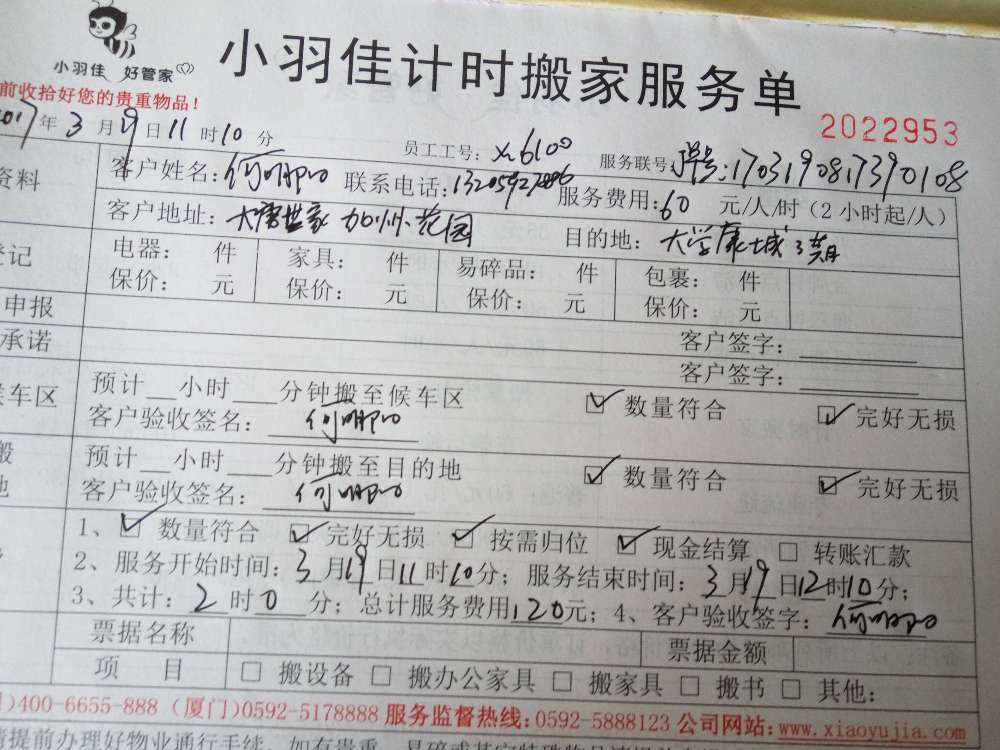 小羽佳 好管家
小羽佳计时搬家服务单
前收拾好您的贵重物品！
2022953
2017年3月19日11时10分 员工工号：xm6100 服务联号：单号：170319081739 0108
资料 客户姓名： 联系电话： 服务费用：60 元/人/时（2小时起/人）
客户地址：大唐世家 加州花园 目的地：大学康城3期
登记 电器： 件 家具： 件 易碎品： 件 包裹： 件
保价： 元 保价： 元 保价： 元 保价： 元
申报 客户签字：
承诺 客户签字：
候车区 预计__小时___分钟搬至候车区 ☑ 数量符合 ☑ 完好无损
客户验收签名：
搬 预计__小时___分钟搬至目的地 ☑ 数量符合 ☑ 完好无损
地 客户验收签名：
1、☑ 数量符合 ☑ 完好无损 ☑ 按需归位 ☑ 现金结算 □ 转账汇款
2、服务开始时间：3月19日11时10分；服务结束时间：3月19日12时10分；
3、共计：2时0分；总计服务费用120元；4、客户验收签字：
票据名称 票据金额
项 目 □ 搬设备 □ 搬办公家具 □ 搬家具 □ 搬书 □ 其他：
)400-6655-888 (厦门)0592-5178888 服务监督热线:0592-5888123 公司网站:www.xiaoyujia.com
请提前办理好物业通行手续，如有贵重、易碎或其它特殊物品请提前